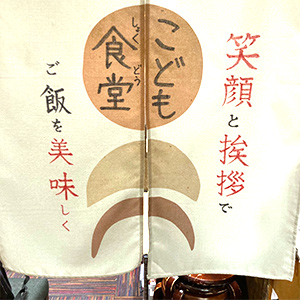 笑顔と挨拶で
こども
食堂
しょくどう
ご飯を美味しく